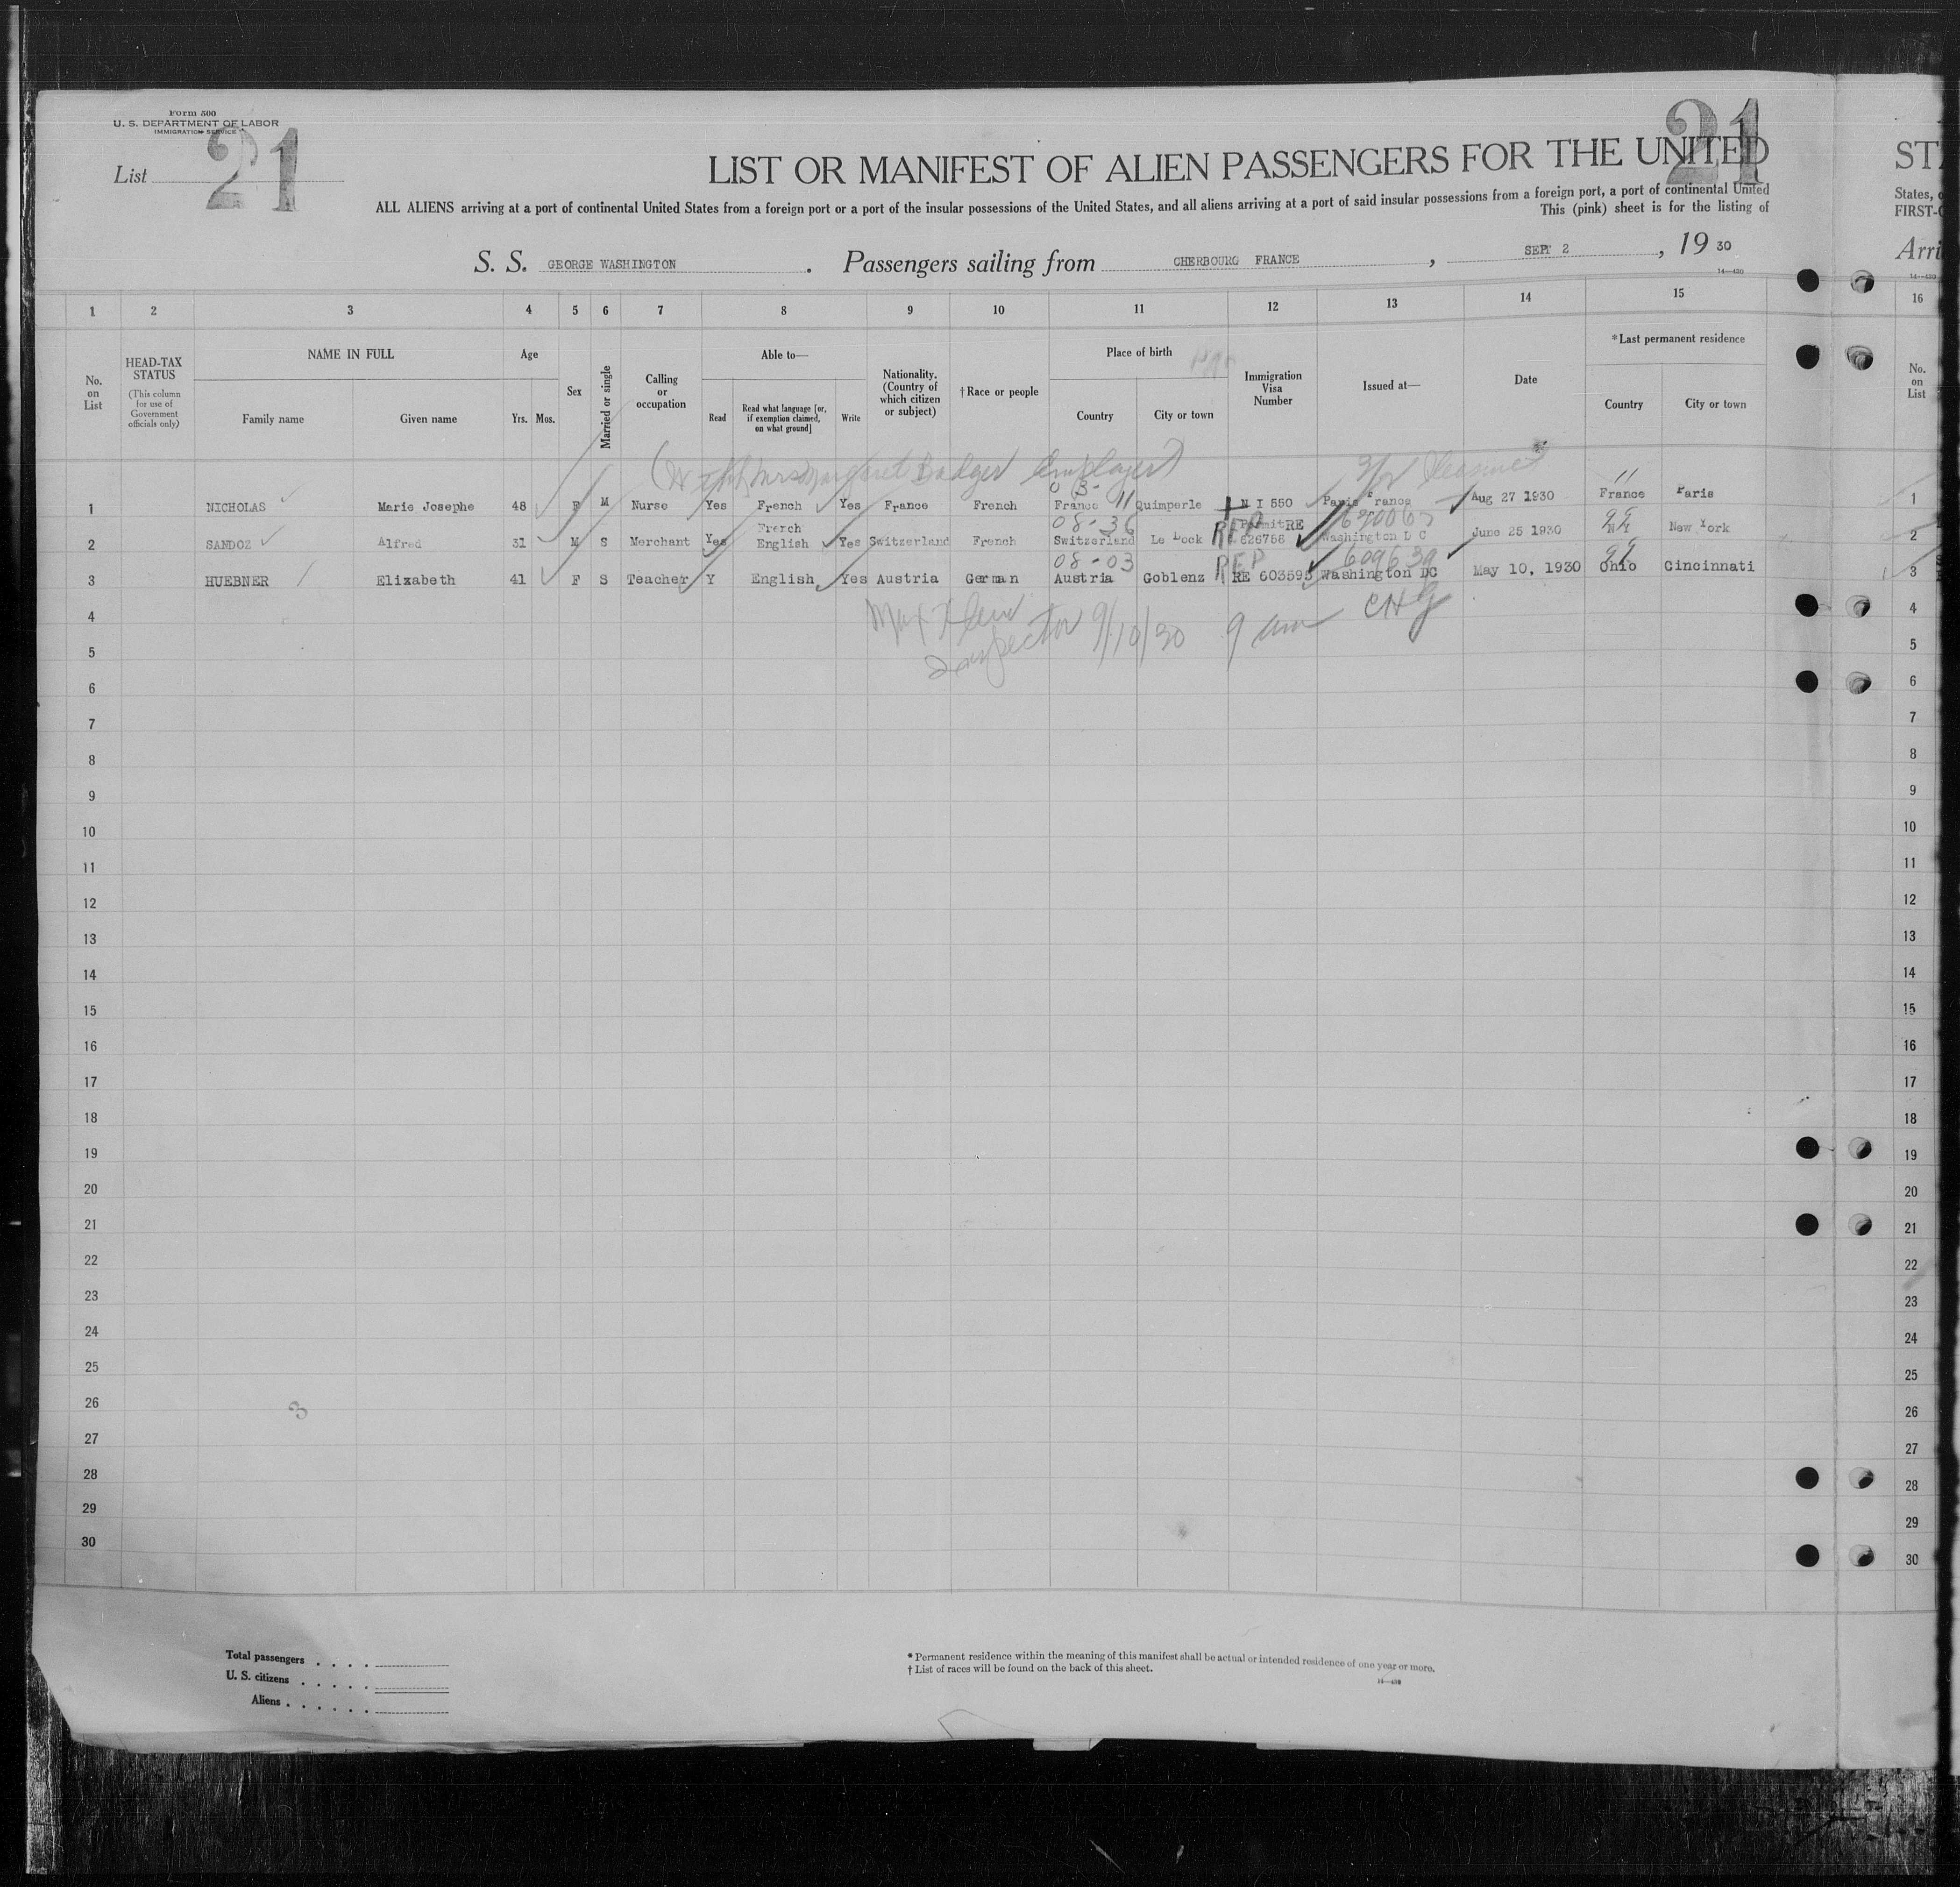 Form 500
U. S. DEPARTMENT OF LABOR
IMMIGRATION SERVICE
List 21
21
LIST OR MANIFEST OF ALIEN PASSENGERS FOR THE UNITED
ST
ALL ALIENS arriving at a port of continental United States from a foreign port or a port of the insular possessions of the United States, and all aliens arriving at a port of said insular possessions from a foreign port, a port of continental United
States,
This (pink) sheet is for the listing of
FIRST-
S. S. GEORGE WASHINGTON. Passengers sailing from CHERBOURG FRANCE, SEPT 2, 19 30
Arri
14—430
14—430
1 2 3 4 5 6 7 8 9 10 11 12 13 14 15 16
No. on List
HEAD-TAX STATUS (This column for use of Government officials only)
NAME IN FULL
Family name Given name
Age
Yrs. Mos.
Sex
Married or single
Calling or occupation
Able to—
Read
Read what language [or, if exemption claimed, on what ground]
Write
Nationality. (Country of which citizen or subject)
†Race or people
Place of birth
Country City or town
Immigration Visa Number
Issued at—
Date
*Last permanent residence
Country City or town
No. on List
(With Mrs Margaret Badger Employer)
1 NICHOLAS Marie Josephe 48 F M Nurse Yes French Yes France French France Quimperle N I 550 Paris France Aug 27 1930 France Paris 1
11
08-36
2 SANDOZ Alfred 31 M S Merchant Yes French English Yes Switzerland French Switzerland Le Lock REP Permit RE 626756 Washington D C June 25 1930 N Y New York 2
08-03 609630
3 HUEBNER Elizabeth 41 F S Teacher Y English Yes Austria German Austria Goblenz REP RE 603595 Washington DC May 10, 1930 Ohio Cincinnati 3
Inspector 9/10/30 9 am
4 4
5 5
6 6
7 7
8 8
9 9
10 10
11 11
12 12
13 13
14 14
15 15
16 16
17 17
18 18
19 19
20 20
21 21
22 22
23 23
24 24
25 25
26 26
3
27 27
28 28
29 29
30 30
Total passengers
U. S. citizens
Aliens
* Permanent residence within the meaning of this manifest shall be actual or intended residence of one year or more.
† List of races will be found on the back of this sheet.
14—430